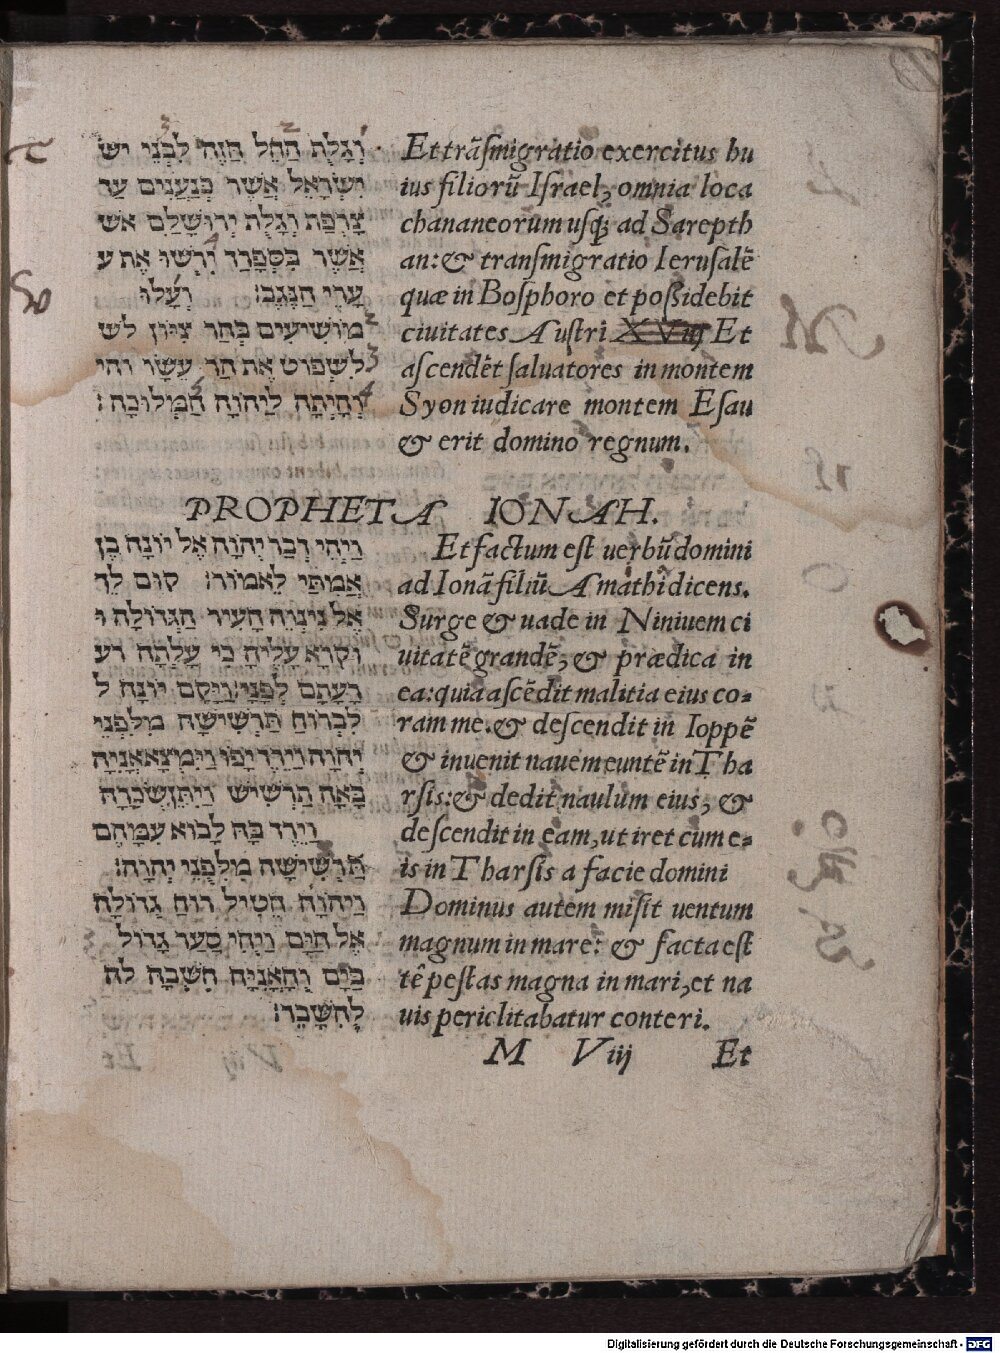 וְגָלֻת הַחֵל הַזֶּה לִבְנֵי יש
יִשְׂרָאֵל אֲשֶׁר כְּנַעֲנִים עַד
צָרְפַת וְגָלֻת יְרוּשָׁלַםִ אש
אֲשֶׁר בִּסְפָרַד יִרְשׁוּ אֶת ע
עָרֵי הַנֶּגֶב׃ וְעָלוּ
מוֹשִׁיעִים בְּהַר צִיּוֹן לש
לִשְׁפּוֹט אֶת הַר עֵשָׂו והי
וְהָיְתָה לַיהֹוָה הַמְּלוּכָה׃
Et trāſmigratio exercitus hu
ius filiorū Iſrael, omnia loca
chananeorum uſq; ad Sarepth
an: & tranſmigratio Ieruſalē
quæ in Boſphoro et poſſidebit
ciuitates Auſtri XViij Et
aſcendēt ſaluatores in montem
Syon iudicare montem Eſau
& erit domino regnum.
PROPHETA IONAH.
וַיְהִי דְבַר יְהֹוָה אֶל יוֹנָה בֶן
אֲמִתַּי לֵאמוֹר׃ קוּם לֵךְ
אֶל נִינְוֵה הָעִיר הַגְּדוֹלָה ו
וּקְרָא עָלֶיהָ כִּי עָלְתָה רע
רָעָתָם לְפָנָי׃ וַיָּקָם יוֹנָה ל
לִבְרוֹחַ תַּרְשִׁישָׁה מִלִּפְנֵי
יְהֹוָה וַיֵּרֶד יָפוֹ וַיִּמְצָא אֳנִיָּה
בָּאָה תַרְשִׁישׁ וַיִּתֵּן שְׂכָרָהּ
וַיֵּרֶד בָּהּ לָבוֹא עִמָּהֶם
תַּרְשִׁישָׁה מִלִּפְנֵי יְהֹוָה׃
וַיהֹוָה הֵטִיל רוּחַ גְּדוֹלָה
אֶל הַיָּם וַיְהִי סַעַר גָּדוֹל
בַּיָּם וְהָאֳנִיָּה חִשְּׁבָה לה
לְהִשָּׁבֵר׃
Et factum eſt uerbū domini
ad Ionā filiū Amathi dicens.
Surge & uade in Niniuem ci
uitatē grandē, & prædica in
ea: quia aſcēdit malitia eius co-
ram me. & deſcendit in Ioppē
& inuenit nauem euntē in Tha
rſis: & dedit naulum eius, &
deſcendit in eam, ut iret cum e-
is in Tharſis a facie domini
Dominus autem miſit uentum
magnum in mare: & facta eſt
tēpeſtas magna in mari, et na
uis periclitabatur conteri.
M Viij Et
Digitalisierung gefördert durch die Deutsche Forschungsgemeinschaft - DFG